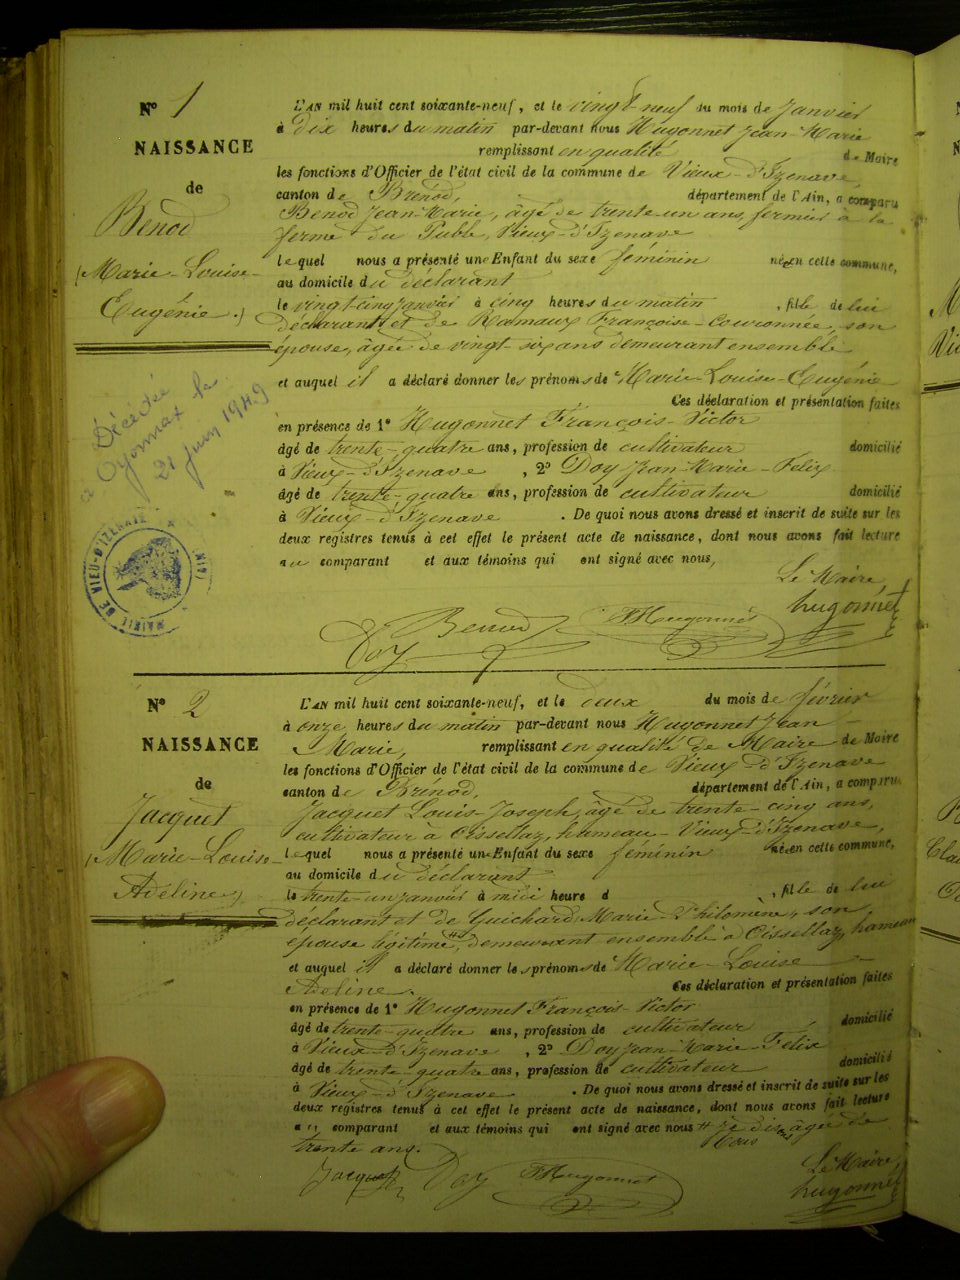 N° 1
NAISSANCE
de
Benod
(Marie-Louise-
Eugénie.)
Décédée
à Oyonnax le
21 juin 1949
MAIRIE DE VIEU-D'IZENAVE (AIN)
L'AN mil huit cent soixante-neuf, et le vingt-neuf du mois de Janvier
à dix heures du matin par-devant nous Hugonnet Jean-Marie
remplissant en qualité de Maire
les fonctions d'Officier de l'état civil de la commune de Vieux-d'Izenave,
canton de Brénod, département de l'Ain, a comparu
Benod Jean-Marie, âgé de trente-un ans, fermier à la
ferme du Puble, Vieux-d'Izenave
lequel nous a présenté un Enfant du sexe féminin née en cette commune,
au domicile du déclarant
le vingt-cinq janvier à cinq heures du matin, fille de lui
déclarant et de Ramaux Françoise-Couronnée, son
épouse, âgée de vingt-six ans demeurant ensemble
et auquel il a déclaré donner les prénoms de Marie-Louise-Eugénie
Ces déclaration et présentation faites
en présence de 1° Hugonnet François-Victor
âgé de trente-quatre ans, profession de cultivateur domicilié
à Vieux-d'Izenave, 2° Doy Jean-Marie-Felix
âgé de trente-quatre ans, profession de cultivateur domicilié
à Vieux-d'Izenave. De quoi nous avons dressé et inscrit de suite sur les
deux registres tenus à cet effet le présent acte de naissance, dont nous avons fait lecture
au comparant et aux témoins qui ont signé avec nous,
Le Maire,
hugonnet
Benod FHugonnet
Doy
N° 2
NAISSANCE
de
Jacquet
(Marie-Louise-
Adeline.)
L'AN mil huit cent soixante-neuf, et le deux du mois de février
à onze heures du matin par-devant nous Hugonnet Jean-
Marie, remplissant en qualité de Maire de Maire
les fonctions d'Officier de l'état civil de la commune de Vieux-d'Izenave
canton de Brénod, département de l'Ain, a comparu
Jacquet Louis-Joseph, âgé de trente-cinq ans,
cultivateur à Oissellaz, hameau-Vieux-d'Izenave,
lequel nous a présenté un Enfant du sexe féminin née en cette commune,
au domicile du déclarant
le trente-un janvier à midi heure d , fille de lui
déclarant et de Guichard Marie-Philomène, son
épouse légitime, # demeurant ensemble à Oissellaz, hameau
et auquel il a déclaré donner les prénoms de Marie-Louise
Adeline. Ces déclaration et présentation faites
en présence de 1° Hugonnet François-Victor
âgé de trente-quatre ans, profession de cultivateur domicilié
à Vieux-d'Izenave, 2° Doy Jean-Marie-Félix
âgé de trente-quatre ans, profession de cultivateur domicilié
à Vieux-d'Izenave. De quoi nous avons dressé et inscrit de suite sur les
deux registres tenus à cet effet le présent acte de naissance, dont nous avons fait lecture
au comparant et aux témoins qui ont signé avec nous # âgée de
trente ans.
Le Maire,
hugonnet
Jacquet Doy FHugonnet